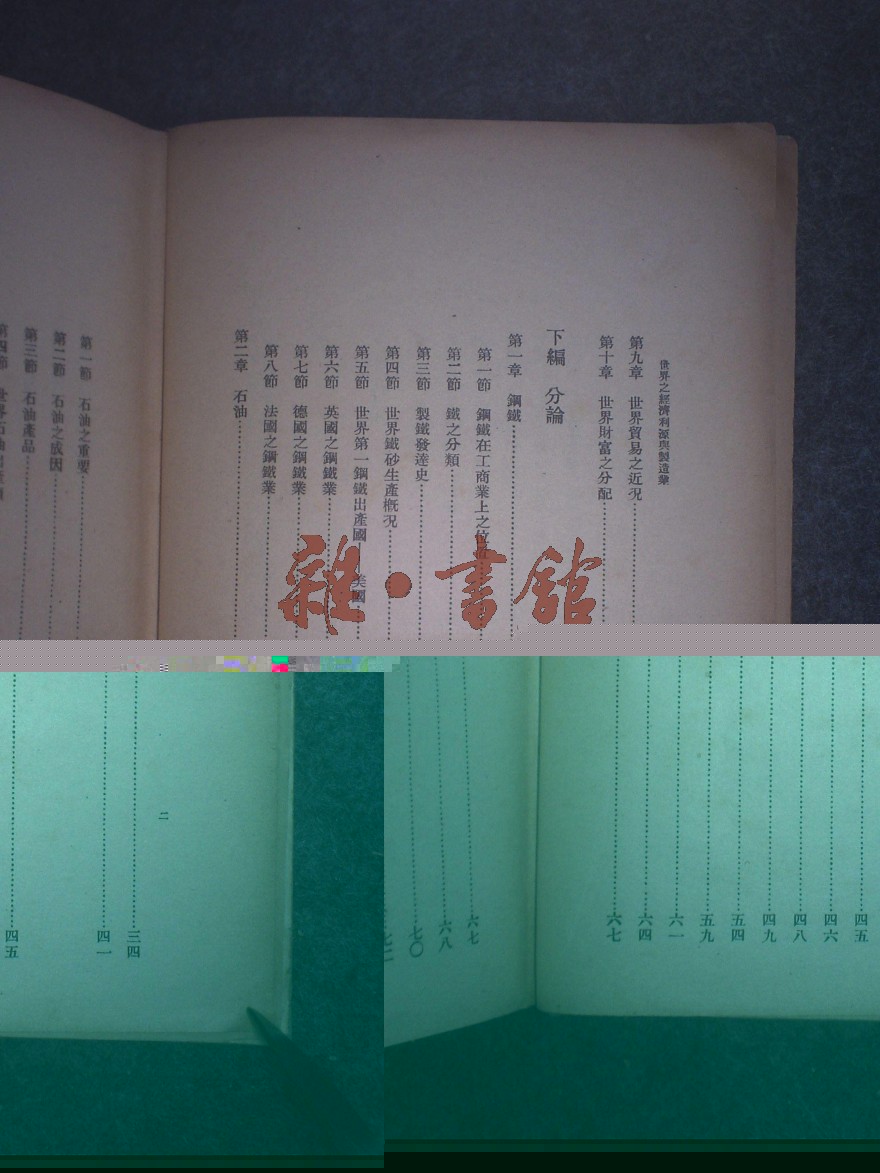 世界之經濟利源與製造業
第九章 世界貿易之近況
第十章 世界財富之分配
下編 分論
第一章 鋼鐵
第一節 鋼鐵在工商業上之位
第二節 鐵之分類
第三節 製鐵發達史
第四節 世界鐵砂生產概況
第五節 世界第一鋼鐵出產國—美國
第六節 英國之鋼鐵業
第七節 德國之鋼鐵業
第八節 法國之鋼鐵業
第二章 石油
第一節 石油之重要
第二節 石油之成因
第三節 石油產品
第四節 世界石油出
雜·書館
二
三四
四一
四五
四五
四六
四八
四九
五四
五九
六一
六四
六七
六七
六八
七〇